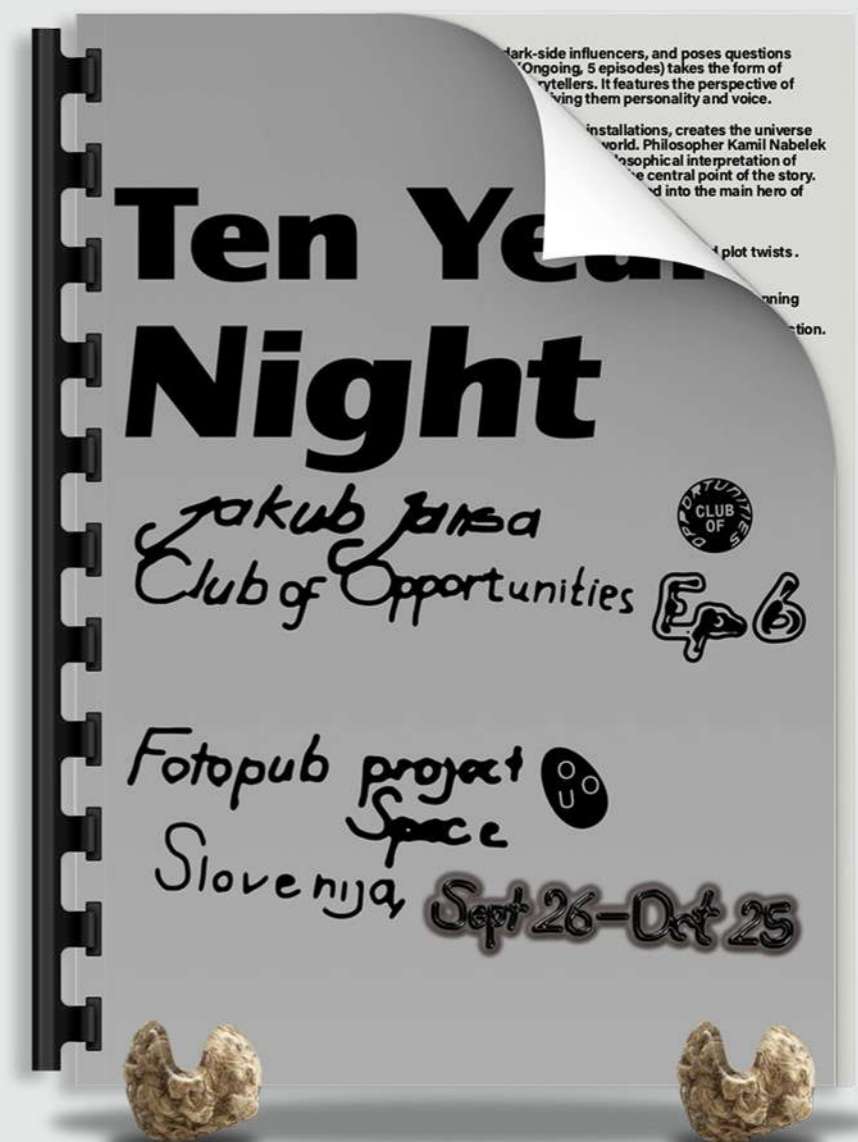 dark-side influencers, and poses questions
(Ongoing, 5 episodes) takes the form of
rytellers. It features the perspective of
iving them personality and voice.
installations, creates the universe
world. Philosopher Kamil Nabelek
losophical interpretation of
e central point of the story.
ed into the main hero of
plot twists .
nning
ction.
Ten Year
Night
Jakub Jansa
CLUB OF OPPORTUNITIES
Club of Opportunities Ep 6
Fotopub project
Space
Slovenija, Sept 26–Oct 25